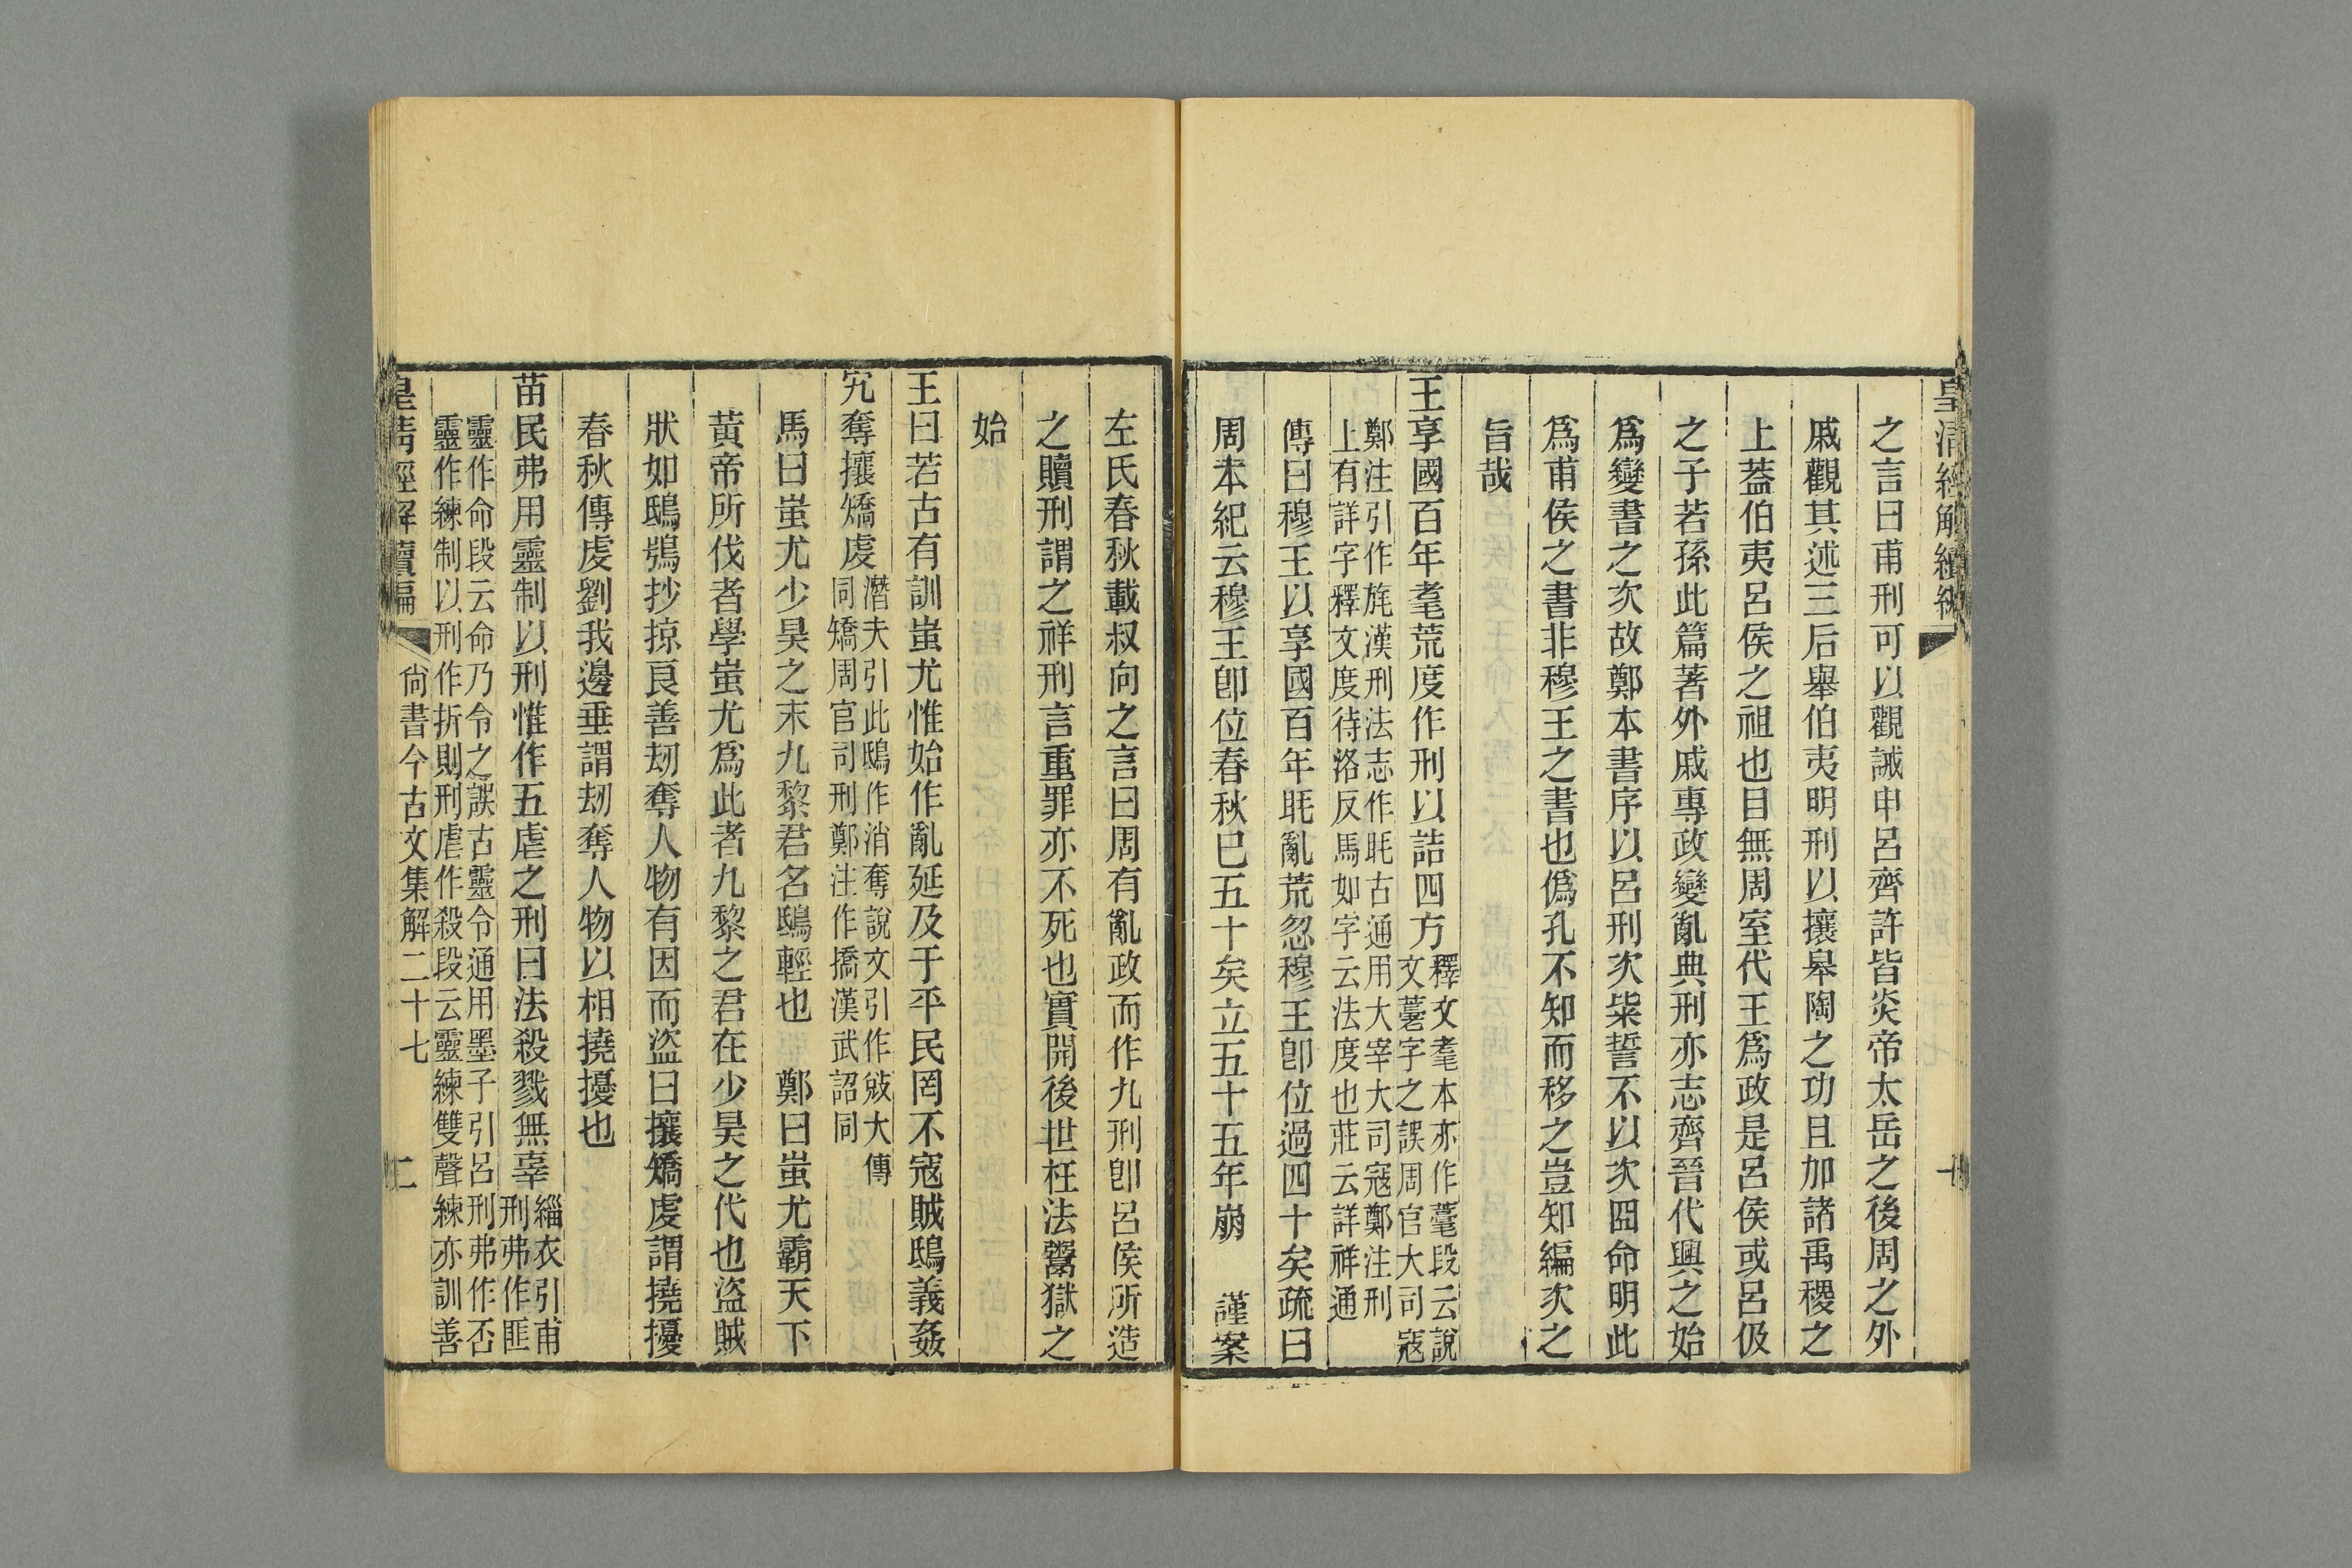 皇清經解續編
之言曰甫刑可以觀誡申呂齊許皆炎帝太岳之後周之外
戚觀其述三后舉伯夷明刑以攘皋陶之功且加諸禹稷之
上葢伯夷呂侯之祖也目無周室代王爲政是呂侯或呂伋
之子若孫此篇著外戚專政變亂典刑亦志齊晉代興之始
爲變書之次故鄭本書序以呂刑次粊誓不以次冏命明此
爲甫侯之書非穆王之書也僞孔不知而移之豈知編次之
旨哉
王享國百年耄荒度作刑以詰四方
釋文耄本亦作薹段云說
文薹字之誤周官大司寇
鄭注引作旄漢刑法志作眊古通用大宰大司寇鄭注刑
上有詳字釋文度待洛反馬如字云法度也莊云詳祥通
傳曰穆王以享國百年眊亂荒忽穆王卽位過四十矣疏曰
周本紀云穆王卽位春秋已五十矣立五十五年崩 謹案
左氏春秋載叔向之言曰周有亂政而作九刑卽呂侯所造
之贖刑謂之祥刑言重罪亦不死也實開後世枉法鬻獄之
始
王曰若古有訓蚩尤惟始作亂延及于平民罔不寇賊鴟義姦
宄奪攘矯虔
潛夫引此鴟作消奪說文引作敓大傳
同矯周官司刑鄭注作撟漢武詔同
馬曰蚩尤少昊之末九黎君名鴟輕也 鄭曰蚩尤霸天下
黃帝所伐者學蚩尤爲此者九黎之君在少昊之代也盜賊
狀如鴟鴞抄掠良善劫奪人物有因而盜曰攘矯虔謂撓擾
春秋傳虔劉我邊垂謂劫奪人物以相撓擾也
苗民弗用靈制以刑惟作五虐之刑曰法殺戮無辜
緇衣引甫
刑弗作匪
靈作命段云命乃令之誤古靈令通用墨子引呂刑弗作否
靈作練制以刑作折則刑虐作殺段云靈練雙聲練亦訓善
皇清經解續編 尙書今古文集解二十七 二